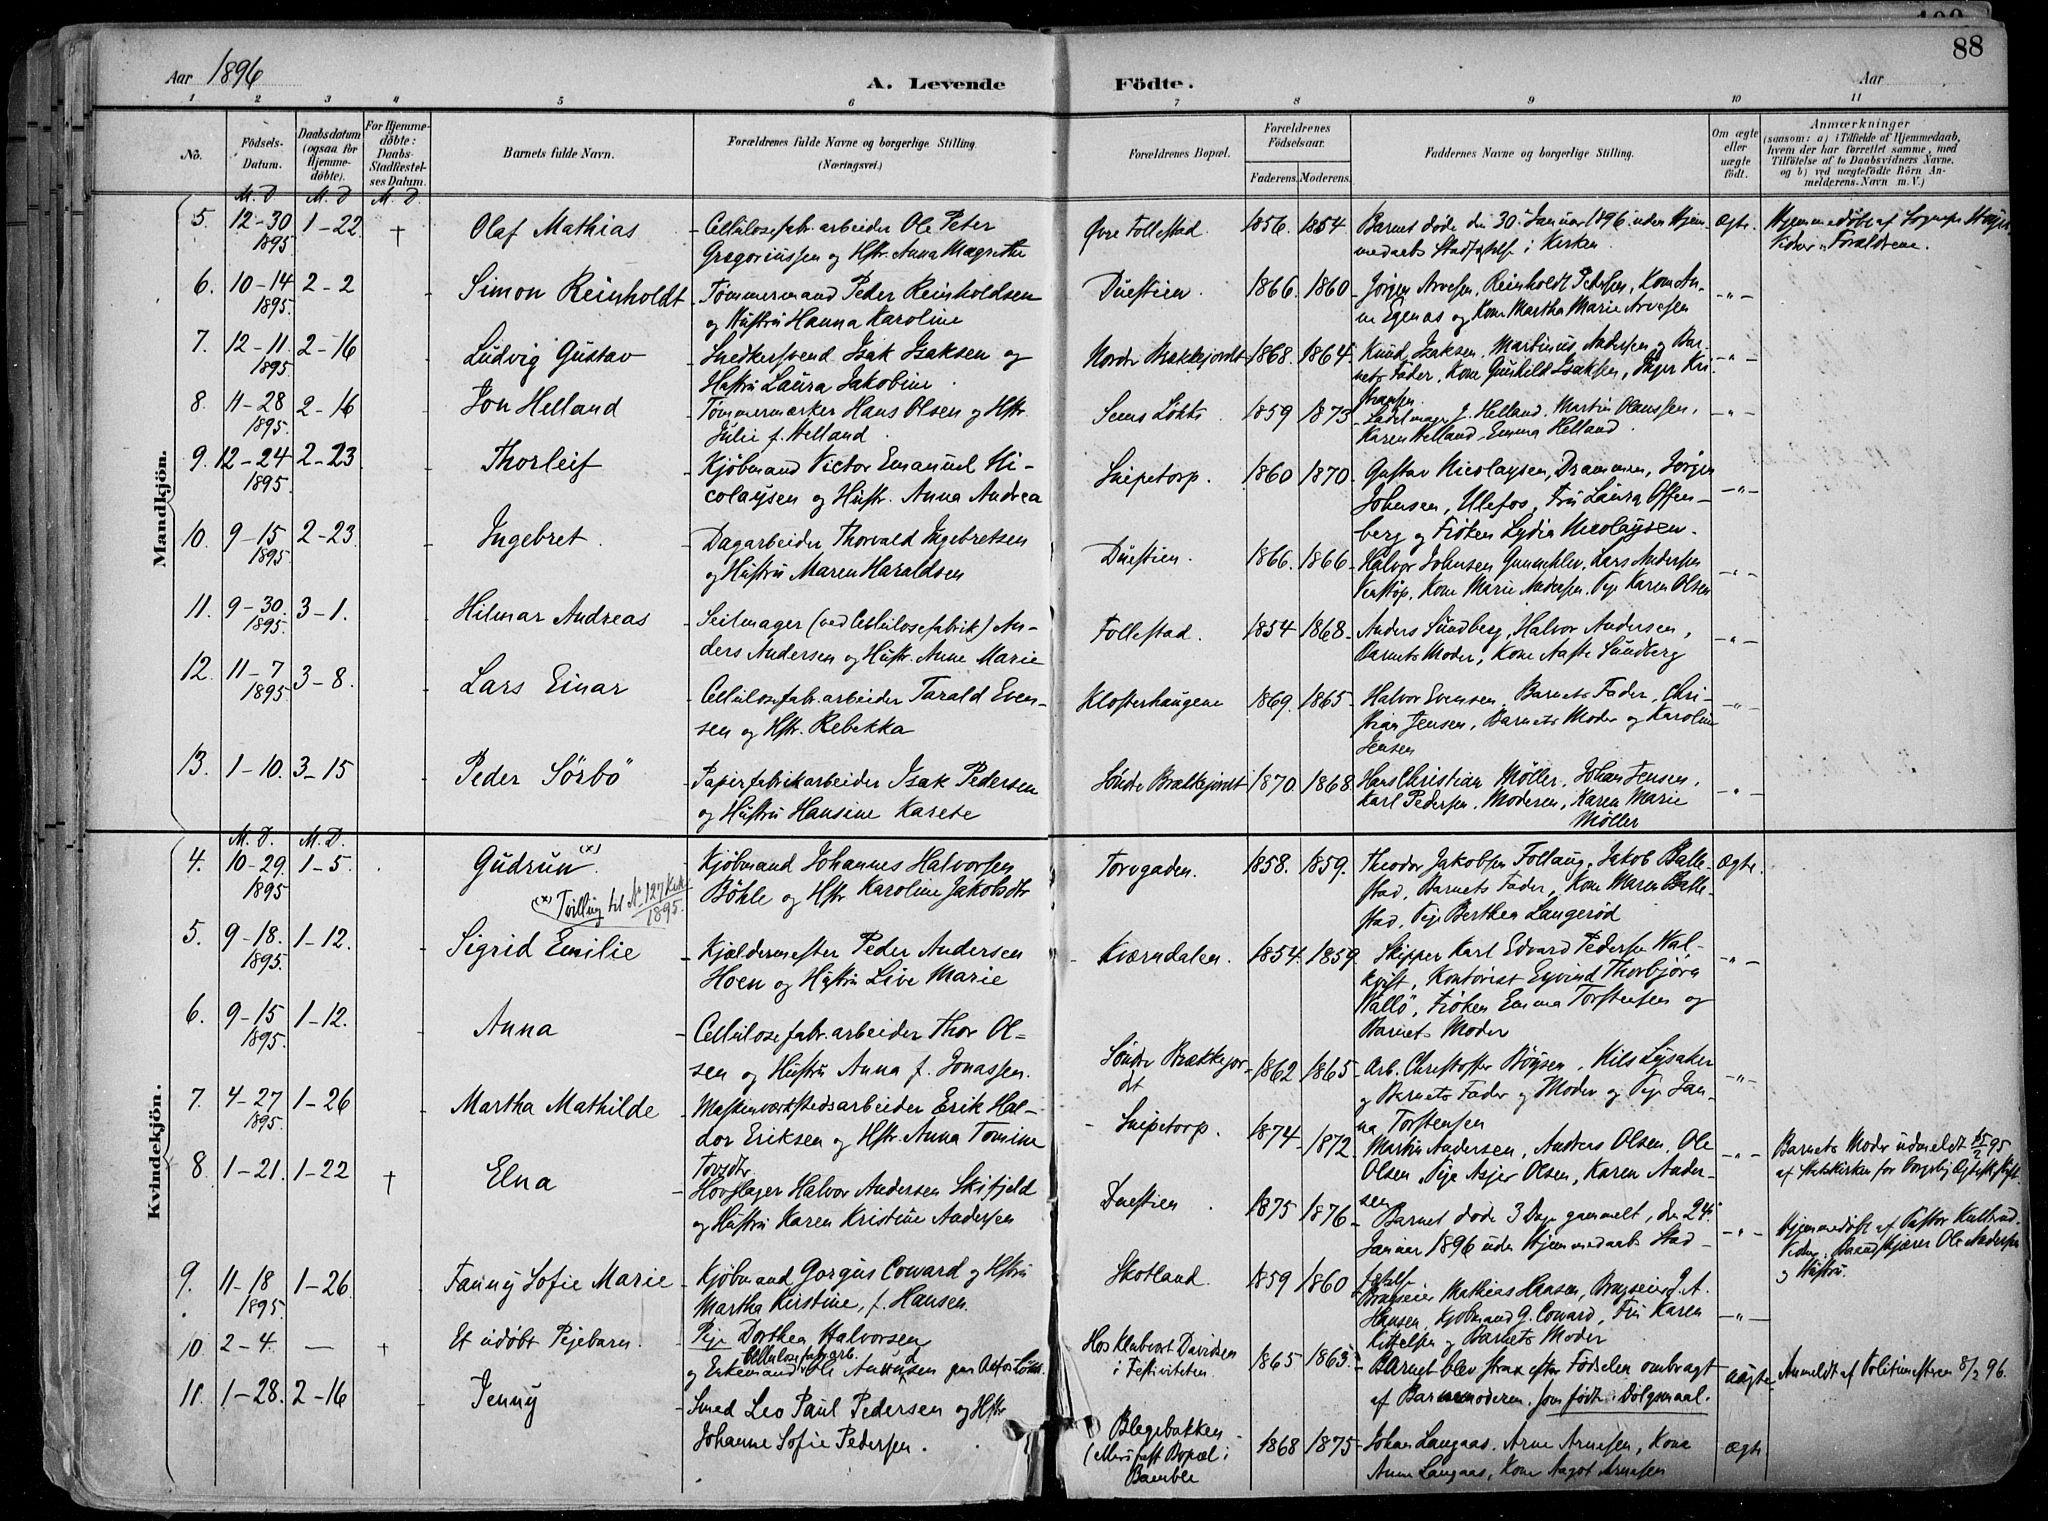 88
Aar 1896
A. Levende Födte.
Aar
1 2 3 4 5 6 7 8 9 10 11
No.
Födsels-Datum.
Daabsdatum (ogsaa for Hjemme-döbte).
For Hjemme-döbte: Daabs-Stadfæstel-ses Datum.
Barnets fulde Navn.
Forældrenes fulde Navne og borgerlige Stilling.
(Næringsvei.)
Forældrenes Bopæl.
Forældrenes Födselsaar.
Faderens. Moderens.
Faddernes Navne og borgerlige Stilling.
Om ægte eller uægte födt.
Anmærkninger
(saasom: a) i Tilfælde af Hjemmedaab, hvem der har forrettet samme, med Tilföielse af to Daabsvidners Navne, og b) ved uægtefödte Börn An-melderens Navn m. V.)
Mandkjön.
M. D. M. D. M. D.
5. 12-30 1895 1-22 + Olaf Mathias
Cellulosefabr.arbeider Ole Peter
Gregoriussen og Hstr. Anna Magrethe
Øvre Follestad. 1856. 1854
Barnet døde den 30. Januar 1896 uden Hjem-
medaabs Stadfæstelse i Kirken. Ægte.
Hjemmedøbt af Sognepr.
Vidner: Forældrene.
6. 10-14 1895. 2-2 Simon Reinholdt
Tømmermand Peder Reinholdsen
og Hustru Hanna Karoline
Duestien. 1866. 1860
Jørgen Arvesen, Reinholdt Pedersen, Kone An-
ne Egenæs og Kone Martha Marie Arvesen -"-
7. 12-11. 1895 2-16 Ludvig Gustav
Snedkersvend Isak Isaksen og
Hustru Laura Jakobine.
Nordre Brækkejordt 1868. 1864
Knud Isaksen, Martinus Andersen og Bar-
nets Fader, Kone Gunhild Isaksen, Inger Kri-
stiansen. -"-
8. 11-28 1895. 2-16 Jon Helland
Tømmermærker Hans Olsen og Hstr.
Julie f. Helland.
Sems Løkke. 1859 1873
Sadelmager J. Helland. Martin Olaussen,
Karen Helland, Emma Helland. -"-
9. 12-24 1895. 2-23 Thorleif
Kjøbmand Victor Emanuel Ni-
colaysen og Hustr. Anna Andrea
Snipetorp. 1860 1870.
Gustav Nicolaysen, Drammen, Jørgen
Johnsen, Ulefos, Fru Laura Offen-
berg og Frøken Lydia Nicolaysen. -"-
10. 9-15 1895. 2-23. Ingebret.
Dagarbeider Thorvald Ingebretsen
og Hustru Maren Haraldsen
Duestien. 1866. 1866
Halvor Johnsen Gunneklev, Lars Andersen
Venstøp, Kone Marie Andersen, Pige Karen Olsen -"-
11. 9-30. 1895. 3-1. Hilmar Andreas
Seilmager (ved Cellulosefabrik) An-
ders Andersen og Hustr. Anne Marie
Follestad. 1854 1868
Anders Sundberg, Halvor Andersen,
Barnets Moder, Kone Aaste Sundberg -"-
12. 11-7 1895. 3-8. Lars Einar
Cellulosefabr.arbeider Tarald Even-
sen og Hstr. Rebekka
Klosterhaugene 1869. 1865
Halvor Evensen, Barnets Fader, Chri-
stian Jensen, Barnets Moder og Karoline
Jensen -"-
13. 1-10. 3-15 Peder Sörbö
Papirfabrikarbeider Isak Pedersen
og Hustru Hansine Karete
Söndre Brækkejordt 1870. 1868
Hans Christian Møller, Johan Jensen,
Karl Pedersen, Moderen, Karen Marie
Møller -"-
Kvindekjön.
M. D. M. D.
4. 10-29. 1895 1-5. Gudrun (x)
(x) Tvilling til No 127 1895.
Kjøbmand Johannes Halvorsen
Böhle og Hstr Karoline Jakobsdtr
Torvgaden. 1858. 1859.
Theodor Jakobsen Follaug, Jakob Balle-
stad, Barnets Fader, Kone Maren Balle-
stad, Pige Berthea Langerød Ægte.
5. 9-18. 1895. 1-12. Sigrid Emilie
Kjældermester Peder Andersen
Hoen og Hustru Live Marie
Kværndalen. 1854. 1859
Skipper Karl Edvard Pedersen Wal-
Kontorist Eyvind Thorbjørn
Wallö, Frøken Emma Torstensen og
Barnets Moder -"-
6. 9-15 1895. 1-12. Anna
Cellulosefabr.arbeider Thor Ol-
sen og Hustru Anna f. Jonassen.
Söndre Brækkejor-
dt 1862 1865
Arb. Christoffer Bøysen, Nils Lysaker
og Barnets Fader og Moder og Pige Jan-
na Torstensen -"-
7. 4-27 1895. 1-26 Martha Mathilde
Maskinværkstedsarbeider Erik Hal-
dor Eriksen og Hstr. Anna Tomine
Tovsdtr.
Snipetorp. 1874 1872.
Martin Andersen, Anders Olsen, Ole
Olsen, Pige Asjer Olsen, Karen Ander-
sen -"-
Barnets Moder udmeldt 15/2 95
af Statskirken for borgerlig Ægteskabsstift.
8 1-21. 1-22 + Elna
Hovslager Halvor Andersen Skifjeld
og Hustru Karen Kristine Andersen
Duestien. 1875 1876
Barnet døde 3 Dage gammelt, den 24.
Januar 1896 uden Hjemmedaabs Stad-
fæstelse -"-
Hjemmedøbt af Pastor
Vidner: Ole Andersen
og Hustru.
9. 11-18 1895. 1-26. Fanny Sofie Marie
Kjøbmand Gorgus Coward og Hstru
Martha Kirstine, f. Hansen.
Skotland. 1859 1860
Brugseier Mathias Hansen, Brugseier J. A.
Hansen, Kjøbmand G. Coward, Fru Karen
Kittelsen og Barnets Moder -"-
10. 2-4. — + Et udøbt Pigebarn.
Pige Dorthea Halvorsen
og Enkemand Cellulosefabr.arb. Ole
Hos Klubvært Davidsen
i Festiviteten. 1865 1863
Barnet blev strax efter Fødselen ombragt
af Barnemoderen. Som født i Dølgsmaal. uægte
Anmeldt af Politimesteren 8/2 96.
11. 1-28. 2-16 Jenny
Smed Leo Paul Pedersen og Hstr
Johanne Sofie Pedersen.
Blegebakken
Bopæl i
Bamble 1868 1875
Johan Langaas, Arne Arnesen, Kone
Anne Langaas, Kone Aagot Arnesen ægte